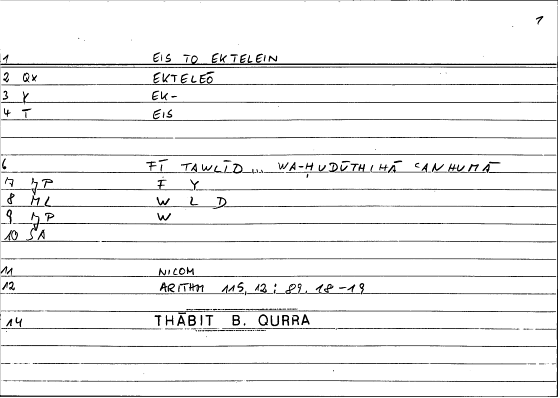 1
1 EIS TO EKTELEIN
2 Qx EKTELEŌ
3 Y EK-
4 T EIS
6 FĪ TAWLĪD ... WA-ḤUDŪTHIHĀ ʿANHUMĀ
7 JP F Y
8 ML W L D
9 JP W
10 SA
11 NICOM
12 ARITHM 115, 12 : 89. 18-19
14 THĀBIT B. QURRA